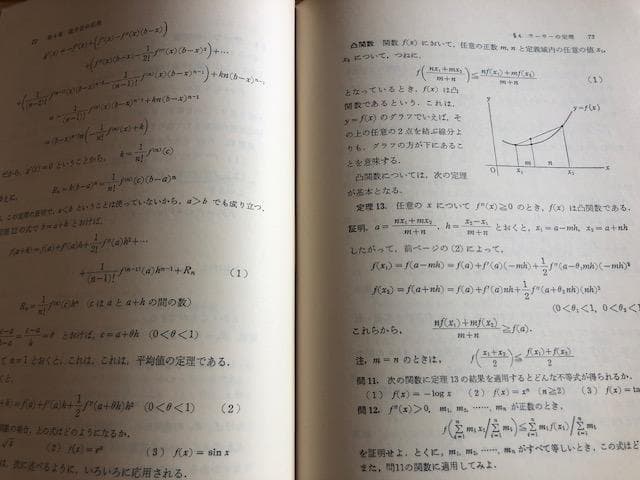 72 第4章 微分法の応用
g'(x)=-f'(x)+{f'(x)-f''(x)(b-x)}
+{f''(x)(b-x)-1/2! f'''(x)(b-x)²}+⋯
=(b-x)ⁿ⁻¹n{-1/n! f⁽ⁿ⁾(x)+k}
g'(c)=0 ということから, k=1/n! f⁽ⁿ⁾(c)
Rₙ=k(b-a)ⁿ=1/n! f⁽ⁿ⁾(c)(b-a)ⁿ
ということは使っていないから, a>b でも成り立つ.
の式で b=a+h とおけば,
f(a+h)=f(a)+f'(a)h+1/2! f''(a)h²+⋯
+1/(n-1)! f⁽ⁿ⁻¹⁾(a)hⁿ⁻¹+Rₙ (1)
Rₙ=1/n! f⁽ⁿ⁾(c)hⁿ (c は a と a+h の間の数)
(c-a)/(b-a)=(c-a)/h=θ とおけば, c=a+θh (0<θ<1)
n=1 とおくと, これは, 平均値の定理である.
(a+h)=f(a)+f'(a)h+1/2 f''(a+θh)h² (0<θ<1) (2)
の場合, 上の式はどのようになるか.
(2) f(x)=eˣ (3) f(x)=sin x
は, 次に述べるように, いろいろに応用される.
§4. テーラーの定理 73
凸関数 関数 f(x) において, 任意の正数 m, n と定義域内の任意の値 x₁,
x₂ について, つねに,
f((nx₁+mx₂)/(m+n))≦(nf(x₁)+mf(x₂))/(m+n) (1)
となっているとき, f(x) は凸
関数であるという. これは,
y=f(x) のグラフでいえば, そ
の上の任意の2点を結ぶ線分よ
りも, グラフの方が下にあるこ
とを意味する.
y y=f(x)
m n
O x₁ x₂ x
凸関数については, 次の定理
が基本となる.
定理 13. 任意の x について f''(x)≧0 のとき, f(x) は凸関数である.
証明. a=(nx₁+mx₂)/(m+n), h=(x₂-x₁)/(m+n) とおくと, x₁=a-mh, x₂=a+nh
したがって, 前ページの (2) によって,
f(x₁)=f(a-mh)=f(a)+f'(a)(-mh)+1/2 f''(a-θ₁mh)(-mh)²
f(x₂)=f(a+nh)=f(a)+f'(a)nh+1/2 f''(a+θ₂nh)(nh)²
(0<θ₁<1, 0<θ₂<1
これらから, (nf(x₁)+mf(x₂))/(m+n)≧f(a).
注. m=n のときは, f((x₁+x₂)/2)≦(f(x₁)+f(x₂))/2
問11. 次の関数に定理 13 の結果を適用するとどんな不等式が得られるか.
(1) f(x)=-log x (2) f(x)=xⁿ (n≧2) (3) f(x)=ta
問12. f''(x)>0, m₁, m₂, ……, mₙ が正数のとき,
f(Σmᵢxᵢ/Σmᵢ)≦Σmᵢf(xᵢ)/Σmᵢ
を証明せよ. とくに, m₁, m₂, ……, mₙ がすべて等しいとき, この式はど
また, 問11の関数に適用してみよ.